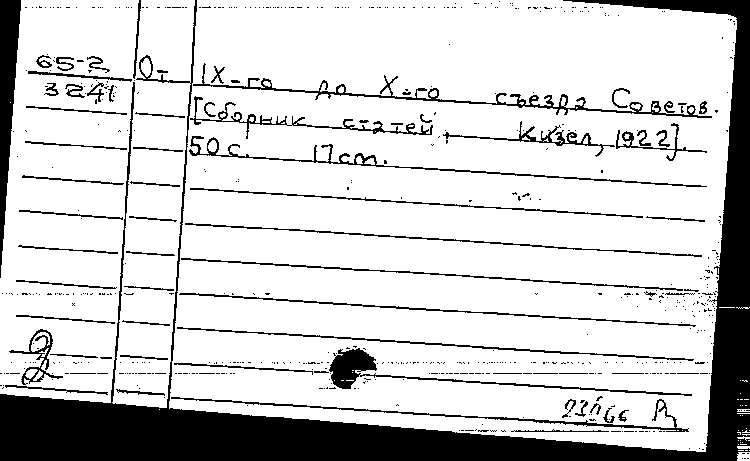 65-2 От IX-го до X-го съезда Советов.
3241 [Сборник статей, Кизел, 1922].
50 с. 17 cm.
2